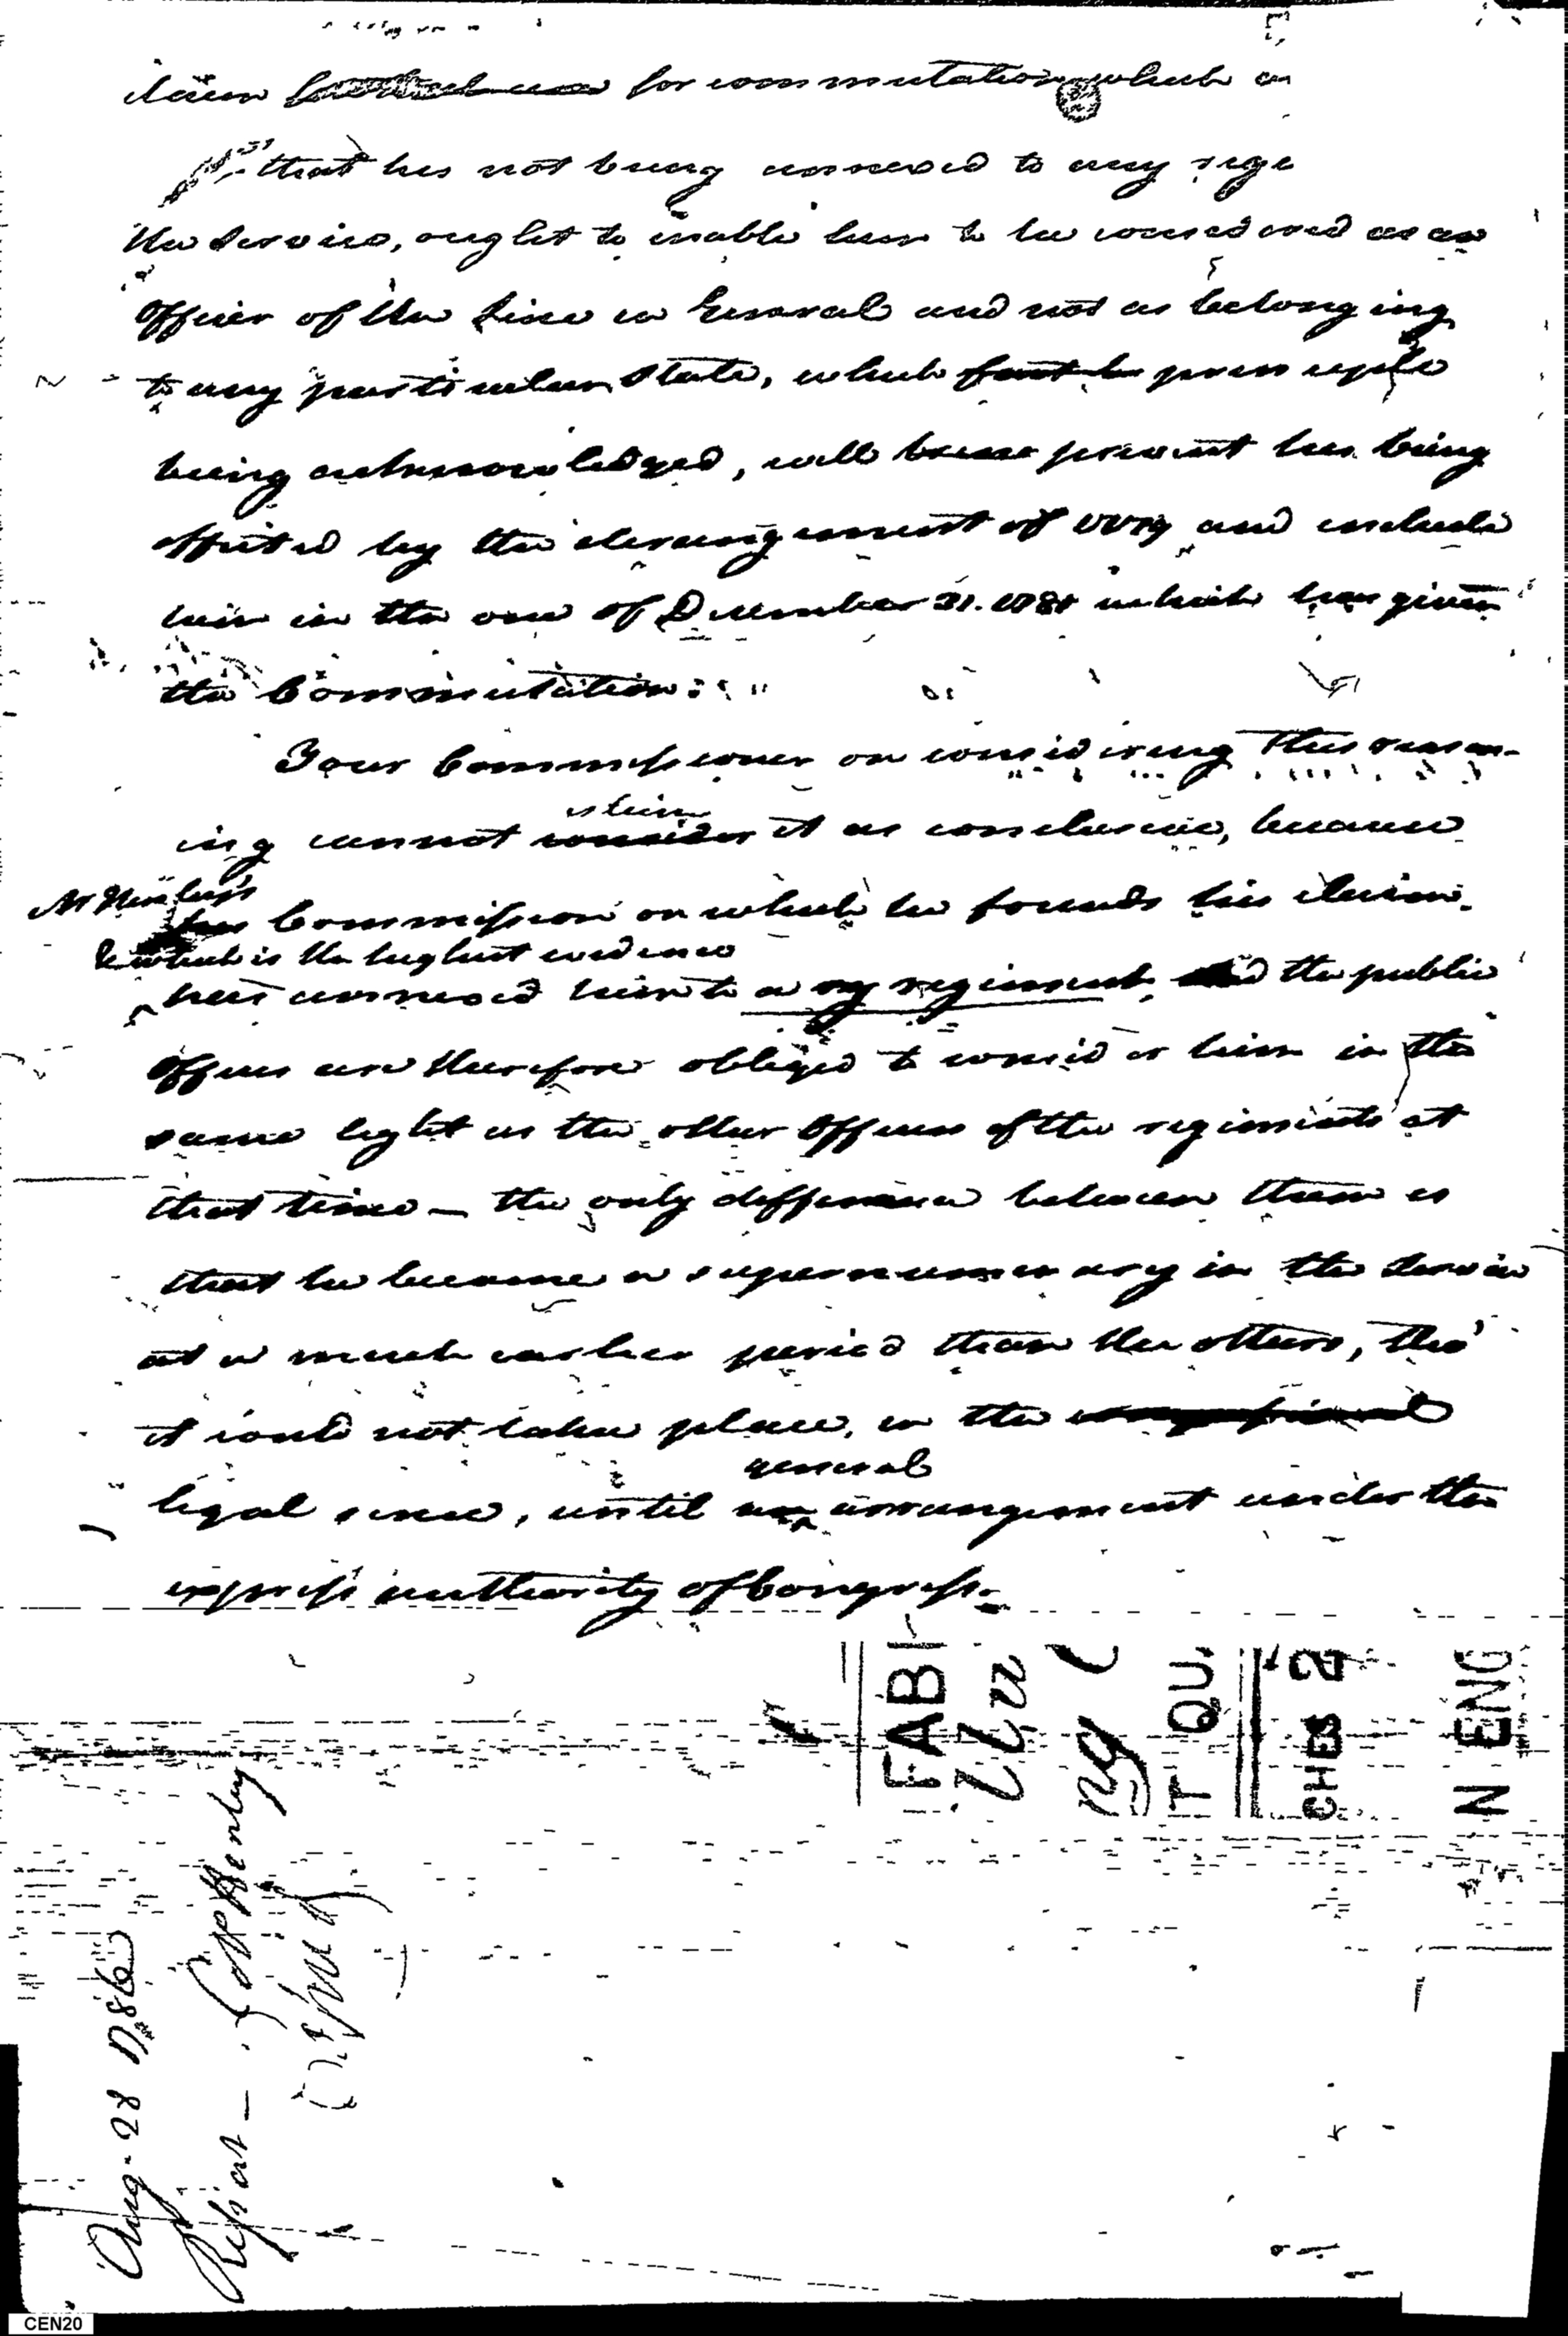 claim for commutation which
that his not being annexed to any
the Service, ought to enable him to be considered as an
Officer of the Line in General and not as belonging
to any particular State, which principle
being acknowledged, will prevent his being
affected by the derangement of and include
him in the one of December 31. which has given
the Commutation.
Your Commissioner on considering this reason-
esteem
ing cannot consider it as conclusive, because
Mr Henley's
Commission on which he founds his claim
& which is the highest evidence
has annexed him to a regiment, the public
Offices are therefore obliged to consider him in the
same light as the other Officers of the regiments at
that time — the only difference between them is
that he became a supernumerary in the Service
at a much earlier period than the others, tho'
it could not take place, in the
general
legal sense, until an arrangement under the
express authority of Congress.
FAB
T QU
CHES 2
N ENG
Aug. 28 1786
Report — Henley